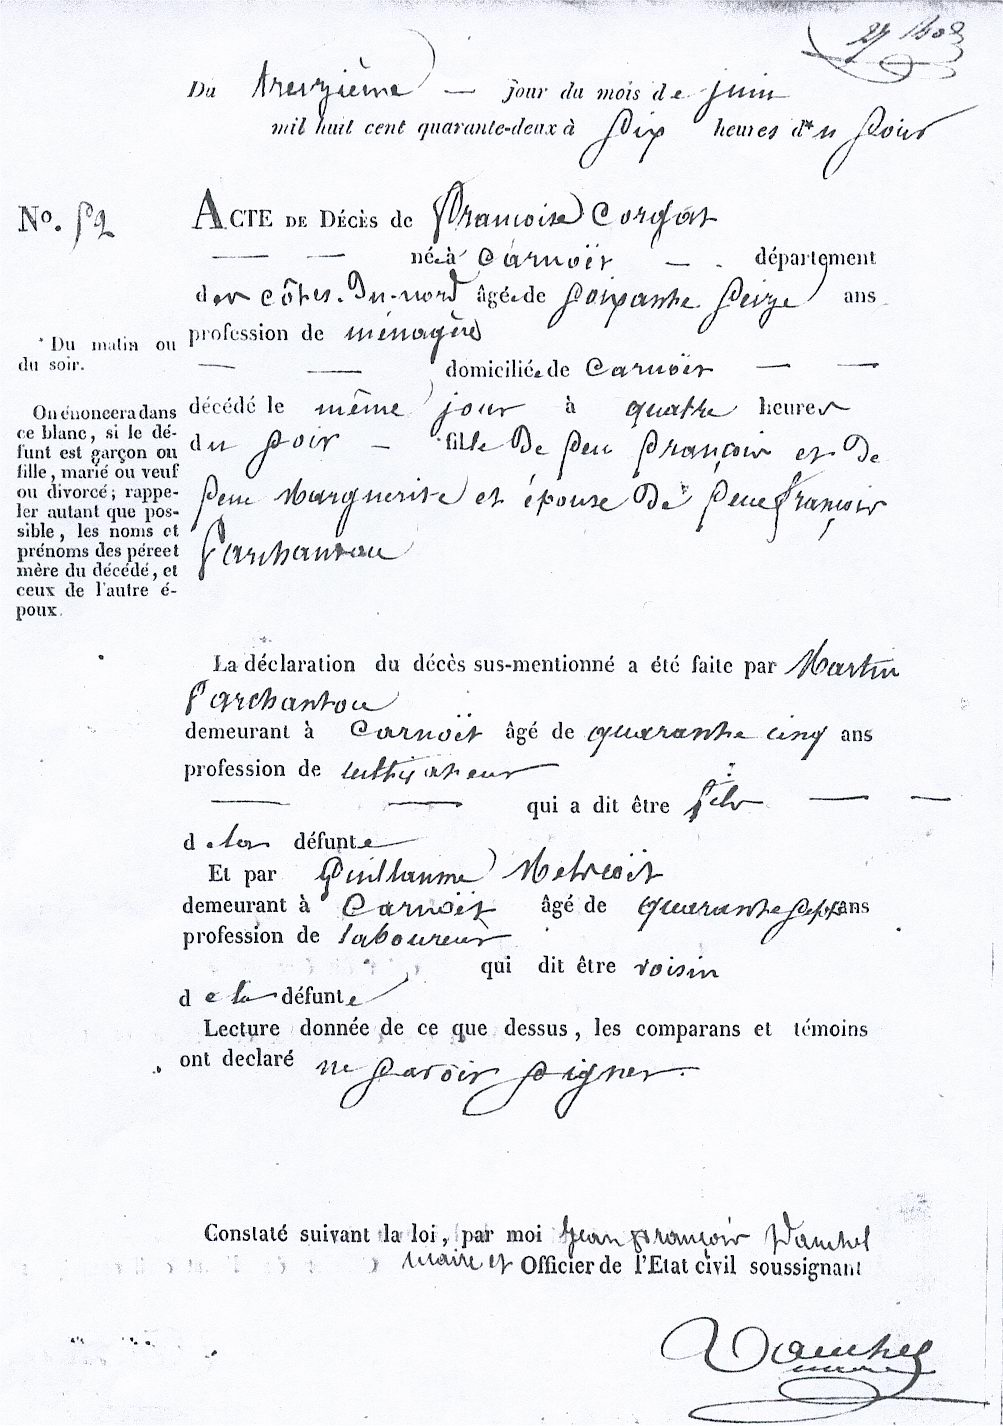 Du treizième jour du mois de juin
mil huit cent quarante-deux à six heures d*u soir
No. 52
ACTE DE DÉCÈS de Françoise Corgat
née à Carnoët département
des Côtes-Du-nord âgée de soixante seize ans
profession de ménagère
domiciliée de Carnoët
décédé le même jour à quatre heures
du soir fille De feu François et De
feue Marguerite et épouse De feue François
Parchantou
* Du matin ou
du soir.
On énoncera dans
ce blanc, si le dé-
funt est garçon ou
fille, marié ou veuf
ou divorcé; rappe-
ler autant que pos-
sible, les noms et
prénoms des père et
mère du décédé, et
ceux de l'autre é-
poux.
La déclaration du décès sus-mentionné a été faite par Martin
Parchantou
demeurant à Carnoët âgé de quarante cinq ans
profession de cultivateur
qui a dit être fils
de la défunte
Et par Guillaume
demeurant à Carnoët âgé de quarante sept ans
profession de laboureur
qui dit être voisin
de la défunte
Lecture donnée de ce que dessus, les comparans et témoins
ont declaré ne savoir signer.
Constaté suivant la loi, par moi Jean françois
maire et Officier de l'Etat civil soussignant